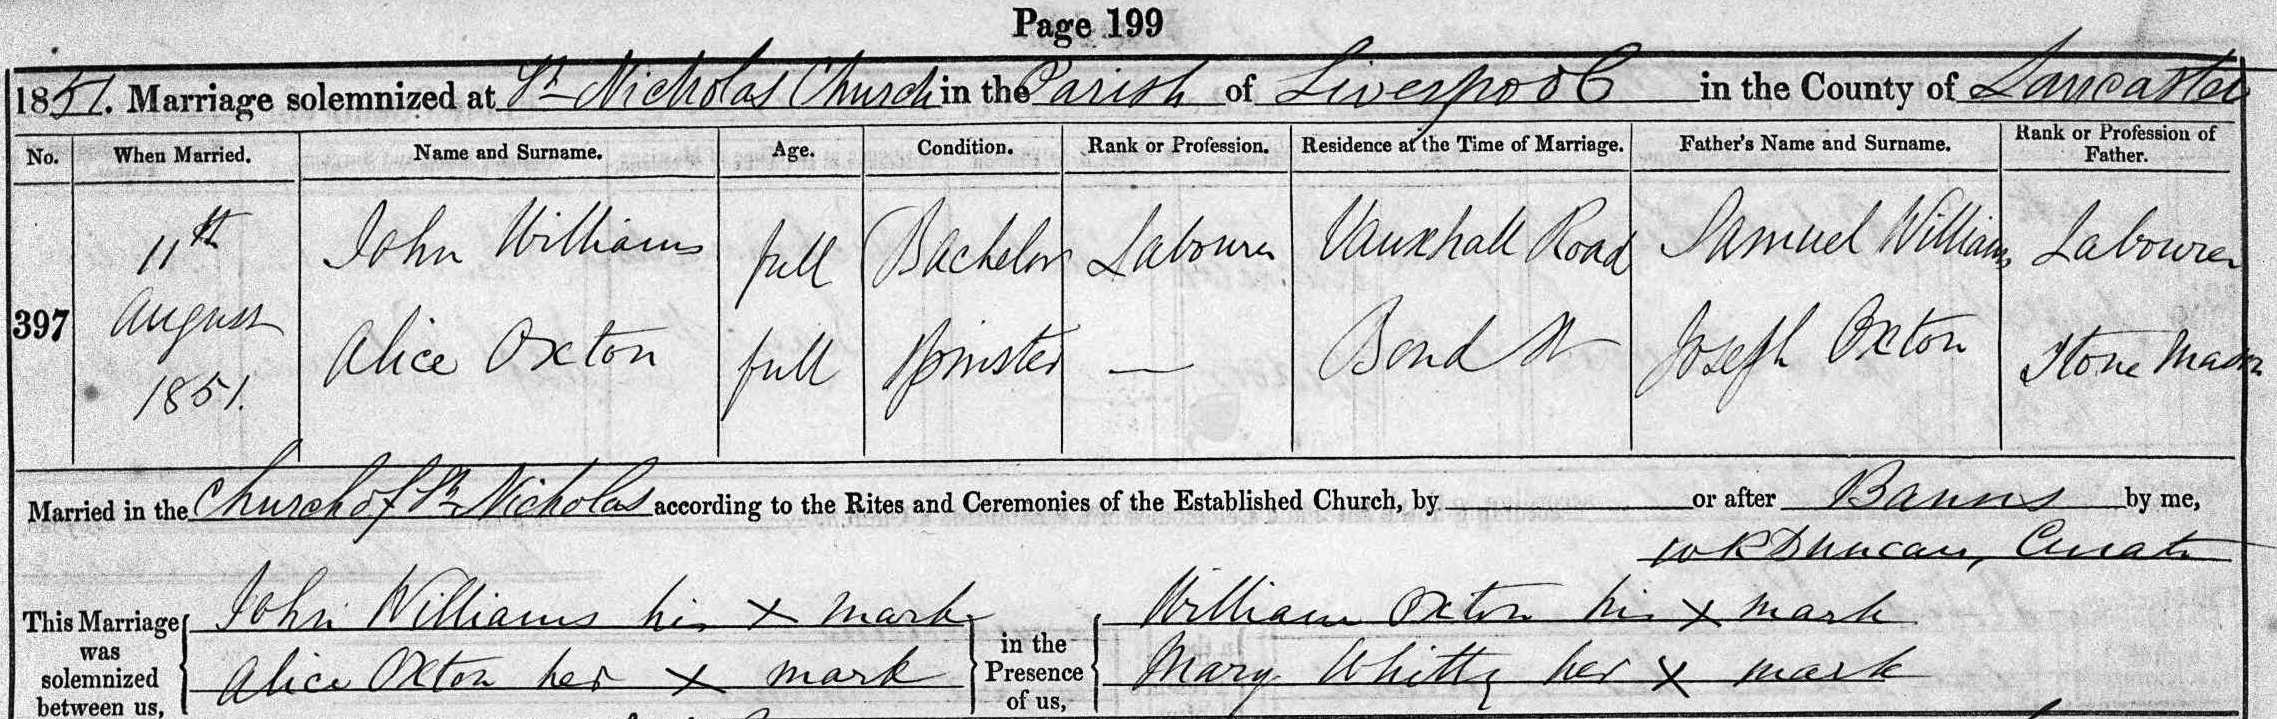 Page 199
1851. Marriage solemnized at St Nicholas Church in the Parish of Liverpool in the County of Lancaster
No. When Married. Name and Surname. Age. Condition. Rank or Profession. Residence at the Time of Marriage. Father's Name and Surname. Rank or Profession of Father.
397 11th August 1851.
John Williams full Bachelor Labourer Vauxhall Road Samuel Williams Labourer
Alice Oxton full Spinster — Bond St Joseph Oxton Stone Mason
Married in the Church of St Nicholas according to the Rites and Ceremonies of the Established Church, by or after Banns by me,
W K Duncan, Curate
This Marriage was solemnized between us, John Williams his x mark in the Presence of us, William Oxton his x mark
Alice Oxton her x mark Mary Whitty her x mark